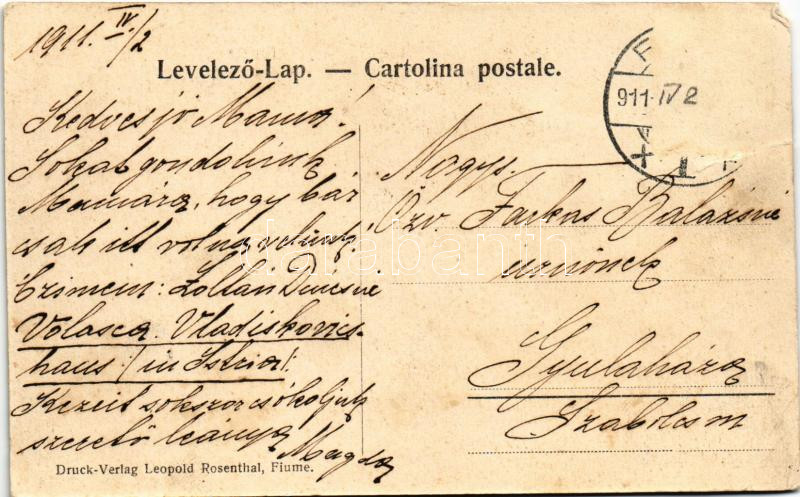 1911. IV/2
Levelező-Lap. — Cartolina postale.
911·IV 2
Kedves jó Mama!
Sokat gondolunk
Mamára, hogy bár
csak itt volna velünk.
Czimem: Zoltán
Volasca. Vladiskovics-
haus /:in Istria:/
Kezeit sokszor csókoljuk
szerető leánya
Magda
Nagys.
Özv. Farkas Balázsné
úrnőnek
Gyulaháza
Szabolcs m
darabanth
Druck-Verlag Leopold Rosenthal, Fiume.